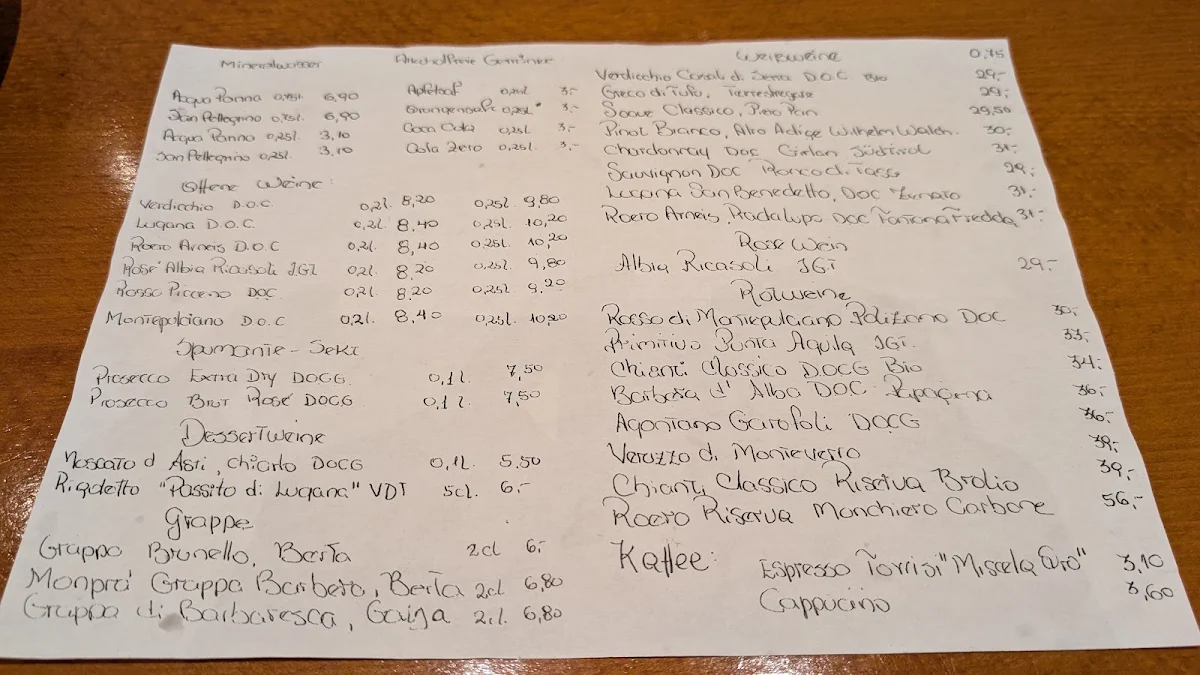 Mineralwasser
Acqua Panna 0,75l. 6,90
San Pellegrino 0,75l. 6,90
Acqua Panna 0,25l. 3,10
San Pellegrino 0,25l. 3,10
Offene Weine:
Verdicchio D.O.C. 0,2l. 8,20 0,25l. 9,80
Lugana D.O.C. 0,2l. 8,40 0,25l. 10,20
Roero Arneis D.O.C 0,2l. 8,40 0,25l. 10,20
Rosé Albia Ricasoli IGT 0,2l. 8,20 0,25l. 9,80
Rosso Piceno DOC 0,2l. 8,20 0,25l. 9,20
Montepulciano D.O.C 0,2l. 8,40 0,25l. 10,20
Spumante - Sekt
Prosecco Extra Dry DOCG. 0,1l. 7,50
Prosecco Brut Rosé DOCG 0,1l. 7,50
Dessertweine
Moscato d Asti, Chiarlo DOCG 0,1l. 5,50
Rigoletto "Passito di Lugana" VDT 5cl. 6,-
Grappe
Grappa Brunello, Berta 2cl 6,-
Monprá Grappa Barbera, Berta 2cl 6,80
Grappa di Barbaresca, Gaiga 2cl. 6,80
Alkoholfreie Getränke
Apfelsaft 0,25l 3,-
Orangensaft 0,25l 3,-
Coca Cola 0,25l. 3,-
Cola Zero 0,25l. 3,-
Weißweine 0,75
Verdicchio Casal di Serra D.O.C Bio 29,-
Greco di Tufo, Terredregore 29,-
Soave Classico, Piero Pan 29,50
Pinot Bianco, Alto Adige Wilhelm Walch. 30,-
Chardonnay Doc Girlan Südtirol 31,-
Sauvignon Doc Ronco di Tass 29,-
Lugana San Benedetto, Doc Zenato 31,-
Roero Arneis, Pradalupo Doc Fontanafredda 31,-
Rosé Wein
Albia Ricasoli IGT 29,-
Rotweine
Rosso di Montepulciano Poliziano Doc 30,-
Primitivo Punta Aquila IGT. 33,-
Chianti Classico D.O.C.G Bio 34,-
Barbera d' Alba DOC 36,-
Agontano Garofoli DOCG 36,-
Veruzzo di Monteverro 39,-
Chianti Classico Riserva Brolio 39,-
Roero Riserva Monchiero Carbone 56,-
Kaffee:
Espresso Torrisi "Miscela Oro" 3,10
Cappucino 3,60